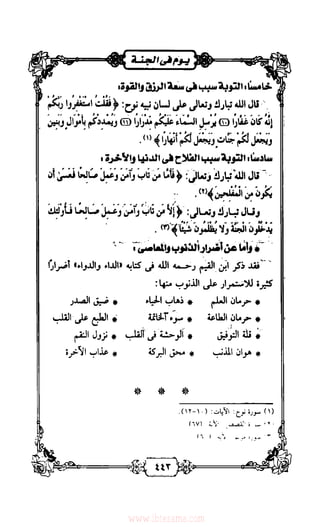 يوم في الجنة
خامسًا: التوبة سبب في سعة الرزق والقوة:
قال الله تبارك وتعالى على لسان نبيه نوح: ﴿ فَقُلْتُ اسْتَغْفِرُوا رَبَّكُمْ
إِنَّهُ كَانَ غَفَّارًا ⑩ يُرْسِلِ السَّمَاءَ عَلَيْكُم مِّدْرَارًا ⑪ وَيُمْدِدْكُم بِأَمْوَالٍ وَبَنِينَ
وَيَجْعَل لَّكُمْ جَنَّاتٍ وَيَجْعَل لَّكُمْ أَنْهَارًا ﴾ (١).
سادسًا: التوبة سبب الفلاح في الدنيا والآخرة:
قال الله تبارك وتعالى: ﴿ فَأَمَّا مَن تَابَ وَآمَنَ وَعَمِلَ صَالِحًا فَعَسَىٰ أَن
يَكُونَ مِنَ الْمُفْلِحِينَ ﴾ (٢).
وقال تبارك وتعالى: ﴿ إِلَّا مَن تَابَ وَآمَنَ وَعَمِلَ صَالِحًا فَأُولَٰئِكَ
يَدْخُلُونَ الْجَنَّةَ وَلَا يُظْلَمُونَ شَيْئًا ﴾ (٣).
* وأما عن أضرار الذنوب والمعاصي:
فقد ذكر ابن القيم رحمه الله في كتابه «الداء والدواء» أضرارًا
كثيرة للاستمرار على الذنوب منها:
* حرمان العلم * ذهاب الحياء * ضيق الصدر
* حرمان الطاعة * سوء الخاتمة * الطبع على القلب
* قلة التوفيق * الوحشة في القلب * نزول النقم
* هوان المذنب * محق البركة * عذاب الآخرة
* * *
(١) سورة نوح: الآيات: (١٠-١٢).
(٢) سورة القصص: الآية (٦٧)
٤٤٣
www.ibtesama.com